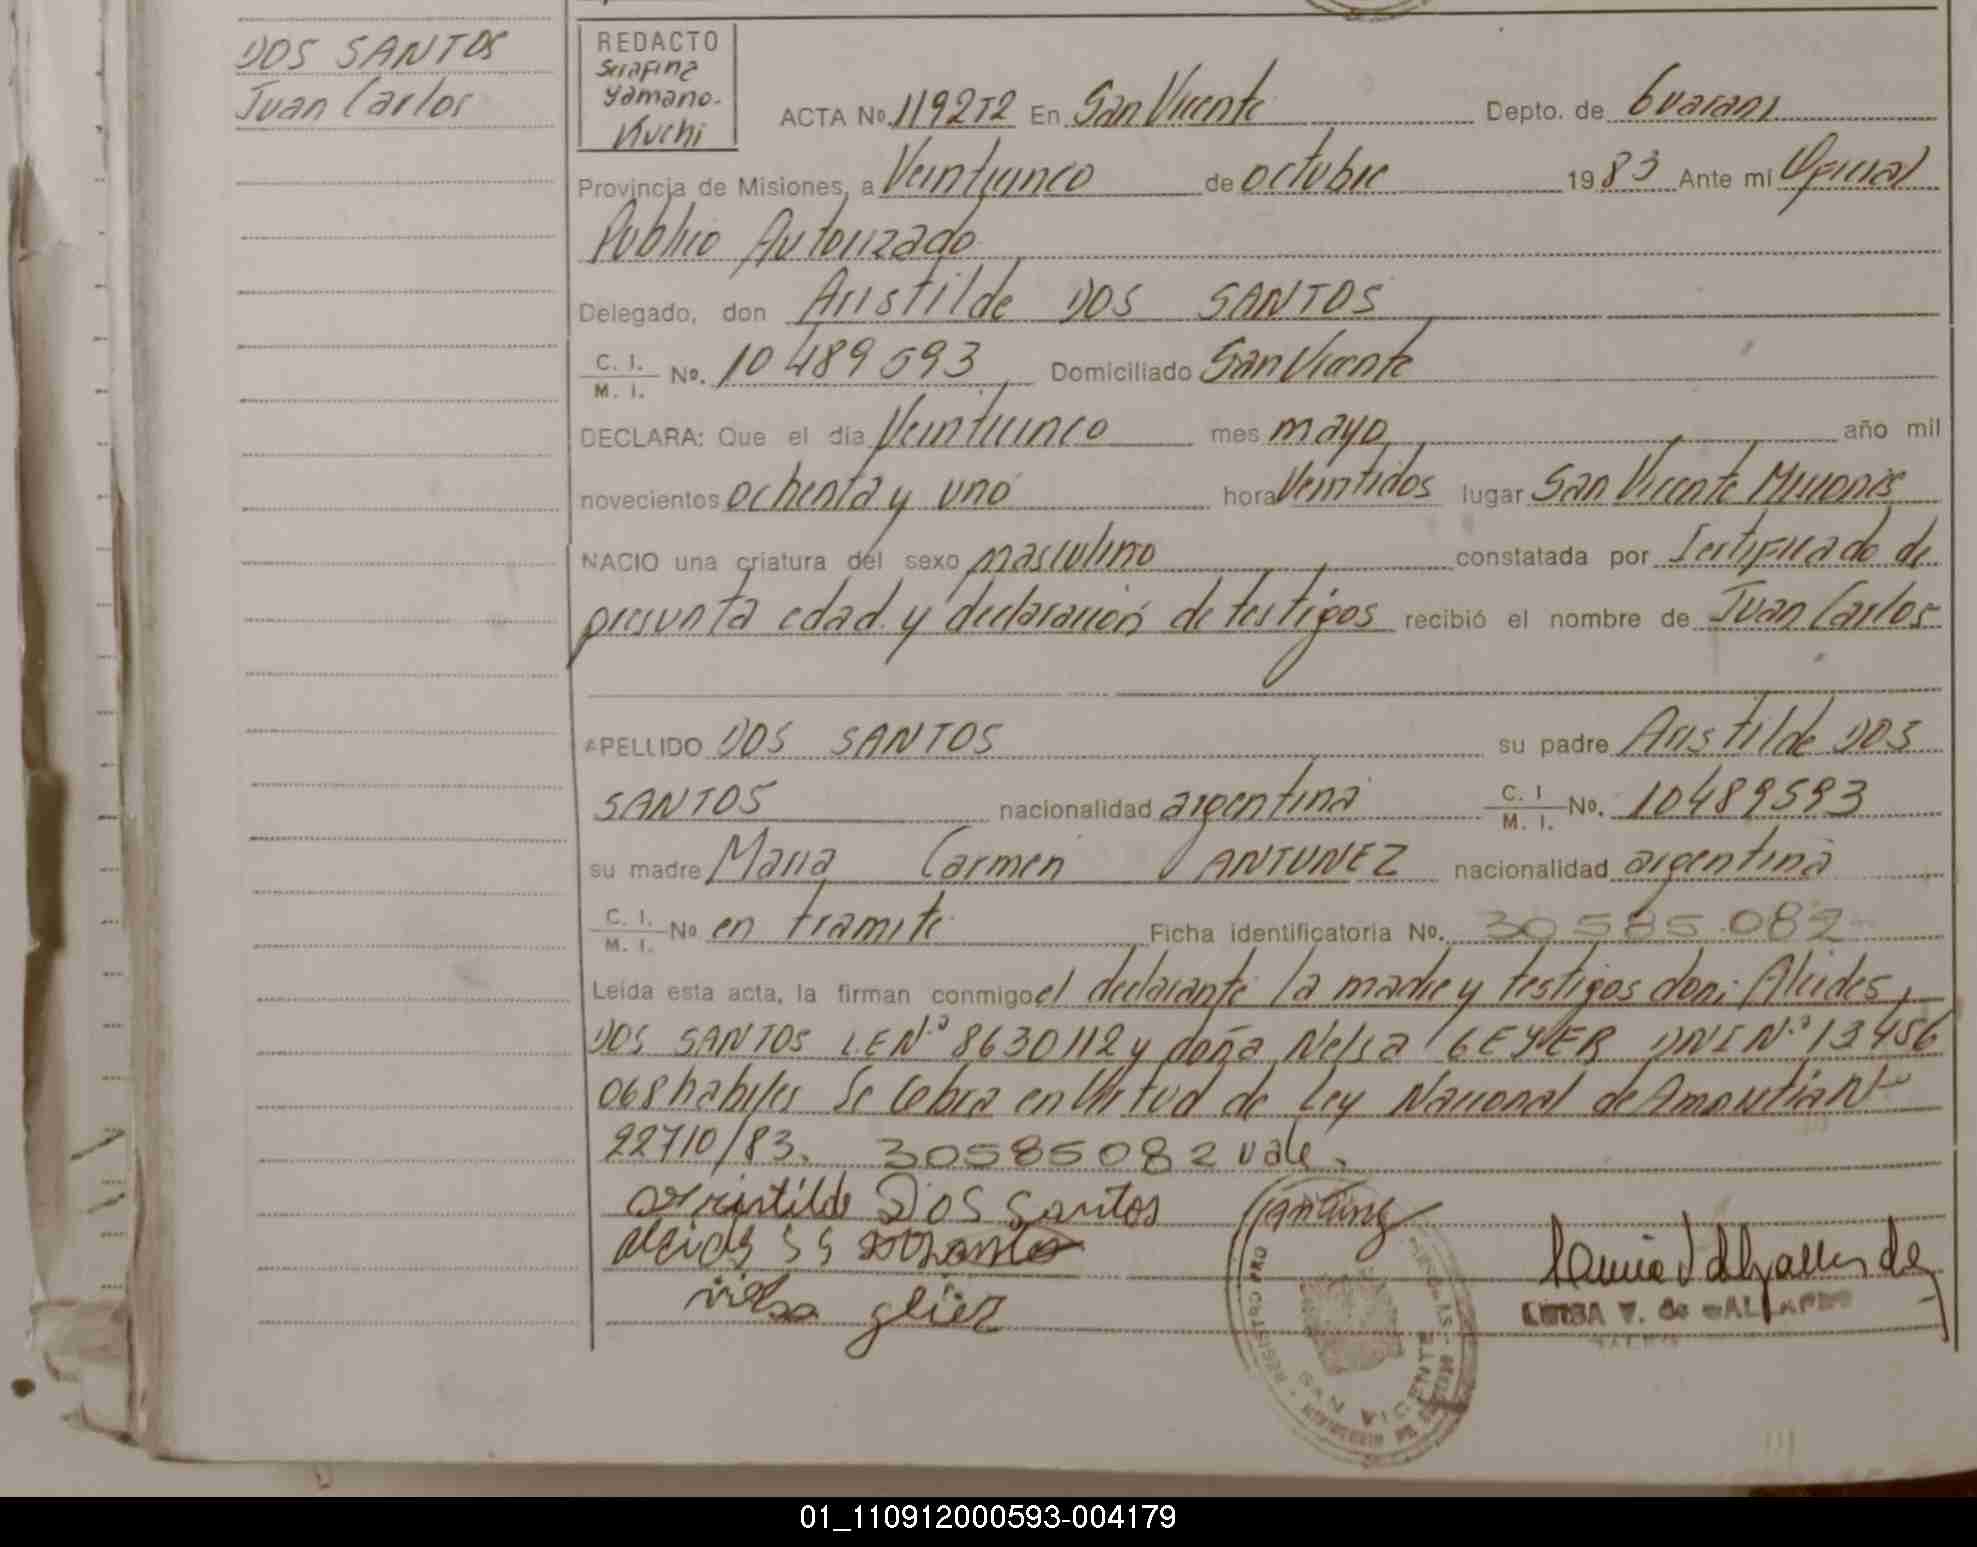 DOS SANTOS
Juan Carlos
REDACTO
Serafina
Yamano-
Kuchi
ACTA No. 119272 En San Vicente Depto. de Guarani
Provincia de Misiones, a Veinticinco de octubre 1983 Ante mi Oficial
Publico Autorizado
Delegado, don Aristilde DOS SANTOS
C. I. / M. I. No. 10489593 Domiciliado San Vicente
DECLARA: Que el dia Veinticinco mes mayo año mil
novecientos ochenta y uno hora Veintidos lugar San Vicente Misiones
NACIO una criatura del sexo masculino constatada por Certificado de
presunta edad y declaración de testigos recibió el nombre de Juan Carlos
APELLIDO DOS SANTOS su padre Aristilde DOS
SANTOS nacionalidad argentina C. I / M. I. No. 10489593
su madre Maria Carmen ANTUNEZ nacionalidad argentina
C. I. / M. I. No en tramite Ficha identificatoria No. 30585.082
Leída esta acta, la firman conmigo el declarante la madre y testigos don: Alcides
DOS SANTOS L.E Nº 8630112 y doña Nelsa GEYER DNI Nº 13456
068 habiles Se labra en Virtud de Ley Nacional de Amnistia Nº
22710/83. 30585082 vale.
Arristilde DOS Santos
alcides
nelsa
LUISA V. de GALLARDO
SAN VICENTE
01_110912000593-004179